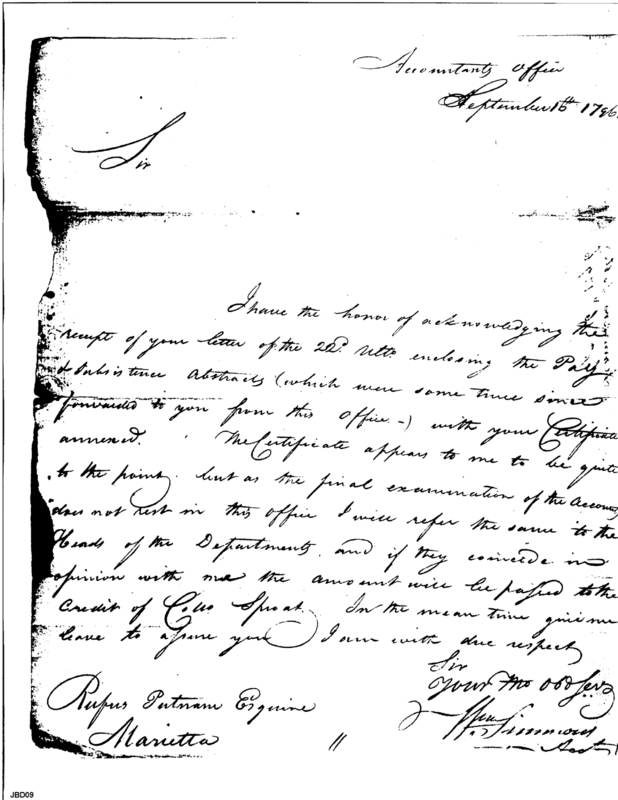 Accountants Office
September 16th 1796
Sir
I have the honor of acknowledging the
receipt of your letter of the 22d. Ulto enclosing the Pay
& Subsistence Abstracts (which were some time since
forwarded to you from this Office -) with your Certificate
annexed. The Certificate appears to me to be quite
to the point, but as the final examination of the Accounts
does not rest in this office I will refer the same to the
Heads of the Departments, and if they coincide in
opinion with me the amount will be passed to the
Credit of Colo Sproat. In the mean time give me
leave to assure you I am with due respect
Sir
Your Mo Obd Serv
Wm Simmons
Acct
Rufus Putnam Esquire
Marietta
JBD09